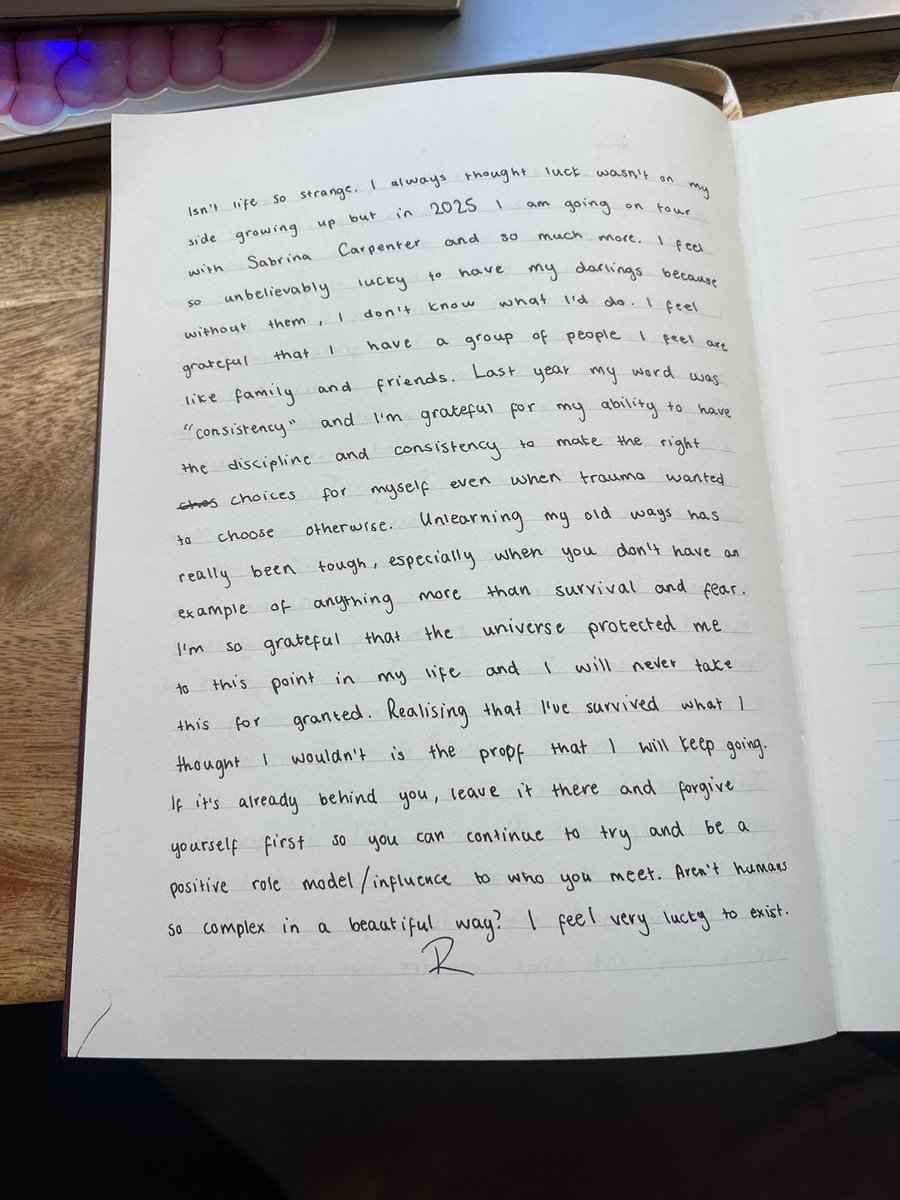 Isn't life so strange. I always thought luck wasn't on my
side growing up but in 2025 I am going on tour
with Sabrina Carpenter and so much more. I feel
so unbelievably lucky to have my darlings because
without them, I don't know what I'd do. I feel
grateful that I have a group of people I feel are
like family and friends. Last year my word was
"consistency" and I'm grateful for my ability to have
the discipline and consistency to make the right
choices for myself even when trauma wanted
to choose otherwise. Unlearning my old ways has
really been tough, especially when you don't have an
example of anything more than survival and fear.
I'm so grateful that the universe protected me
to this point in my life and I will never take
this for granted. Realising that I've survived what I
thought I wouldn't is the proof that I will keep going.
If it's already behind you, leave it there and forgive
yourself first so you can continue to try and be a
positive role model/influence to who you meet. Aren't humans
so complex in a beautiful way? I feel very lucky to exist.
R